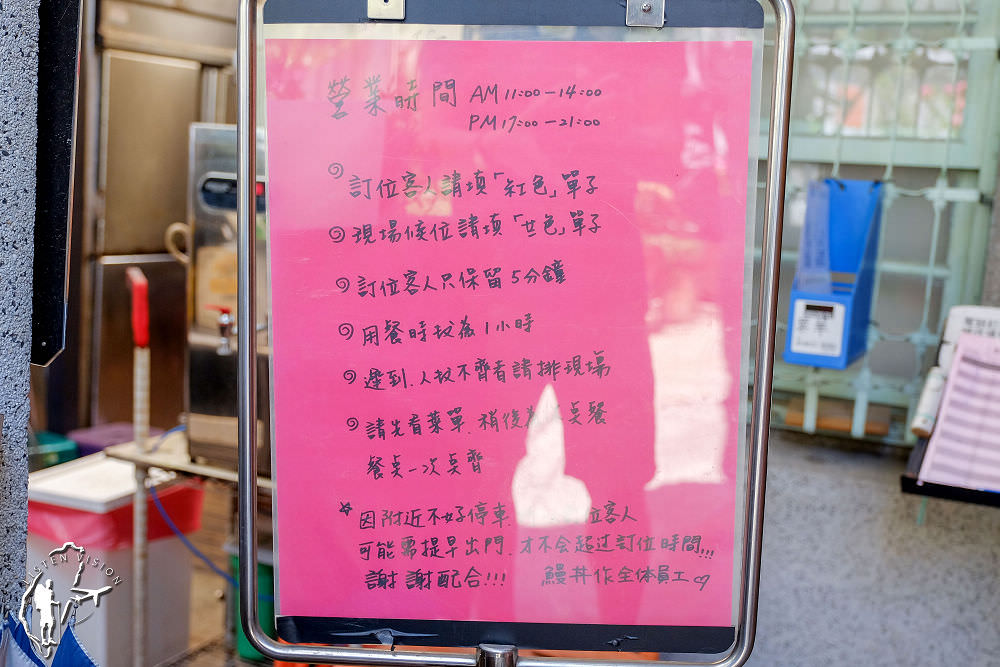 營業時間 AM 11:00-14:00
PM 17:00-21:00
訂位客人請填「紅色」單子
現場候位請填「廿色」單子
訂位客人只保留5分鐘
用餐時段為1小時
遲到.人數不齊者請排現場
請先看菜單.稍後為 桌餐
餐桌一次桌齊
因附近不好停車. 位客人
可能需提早出門.才不会超过訂位時間,,,
謝謝配合!!! 鰻丼作全体員工
LISTEN VISION